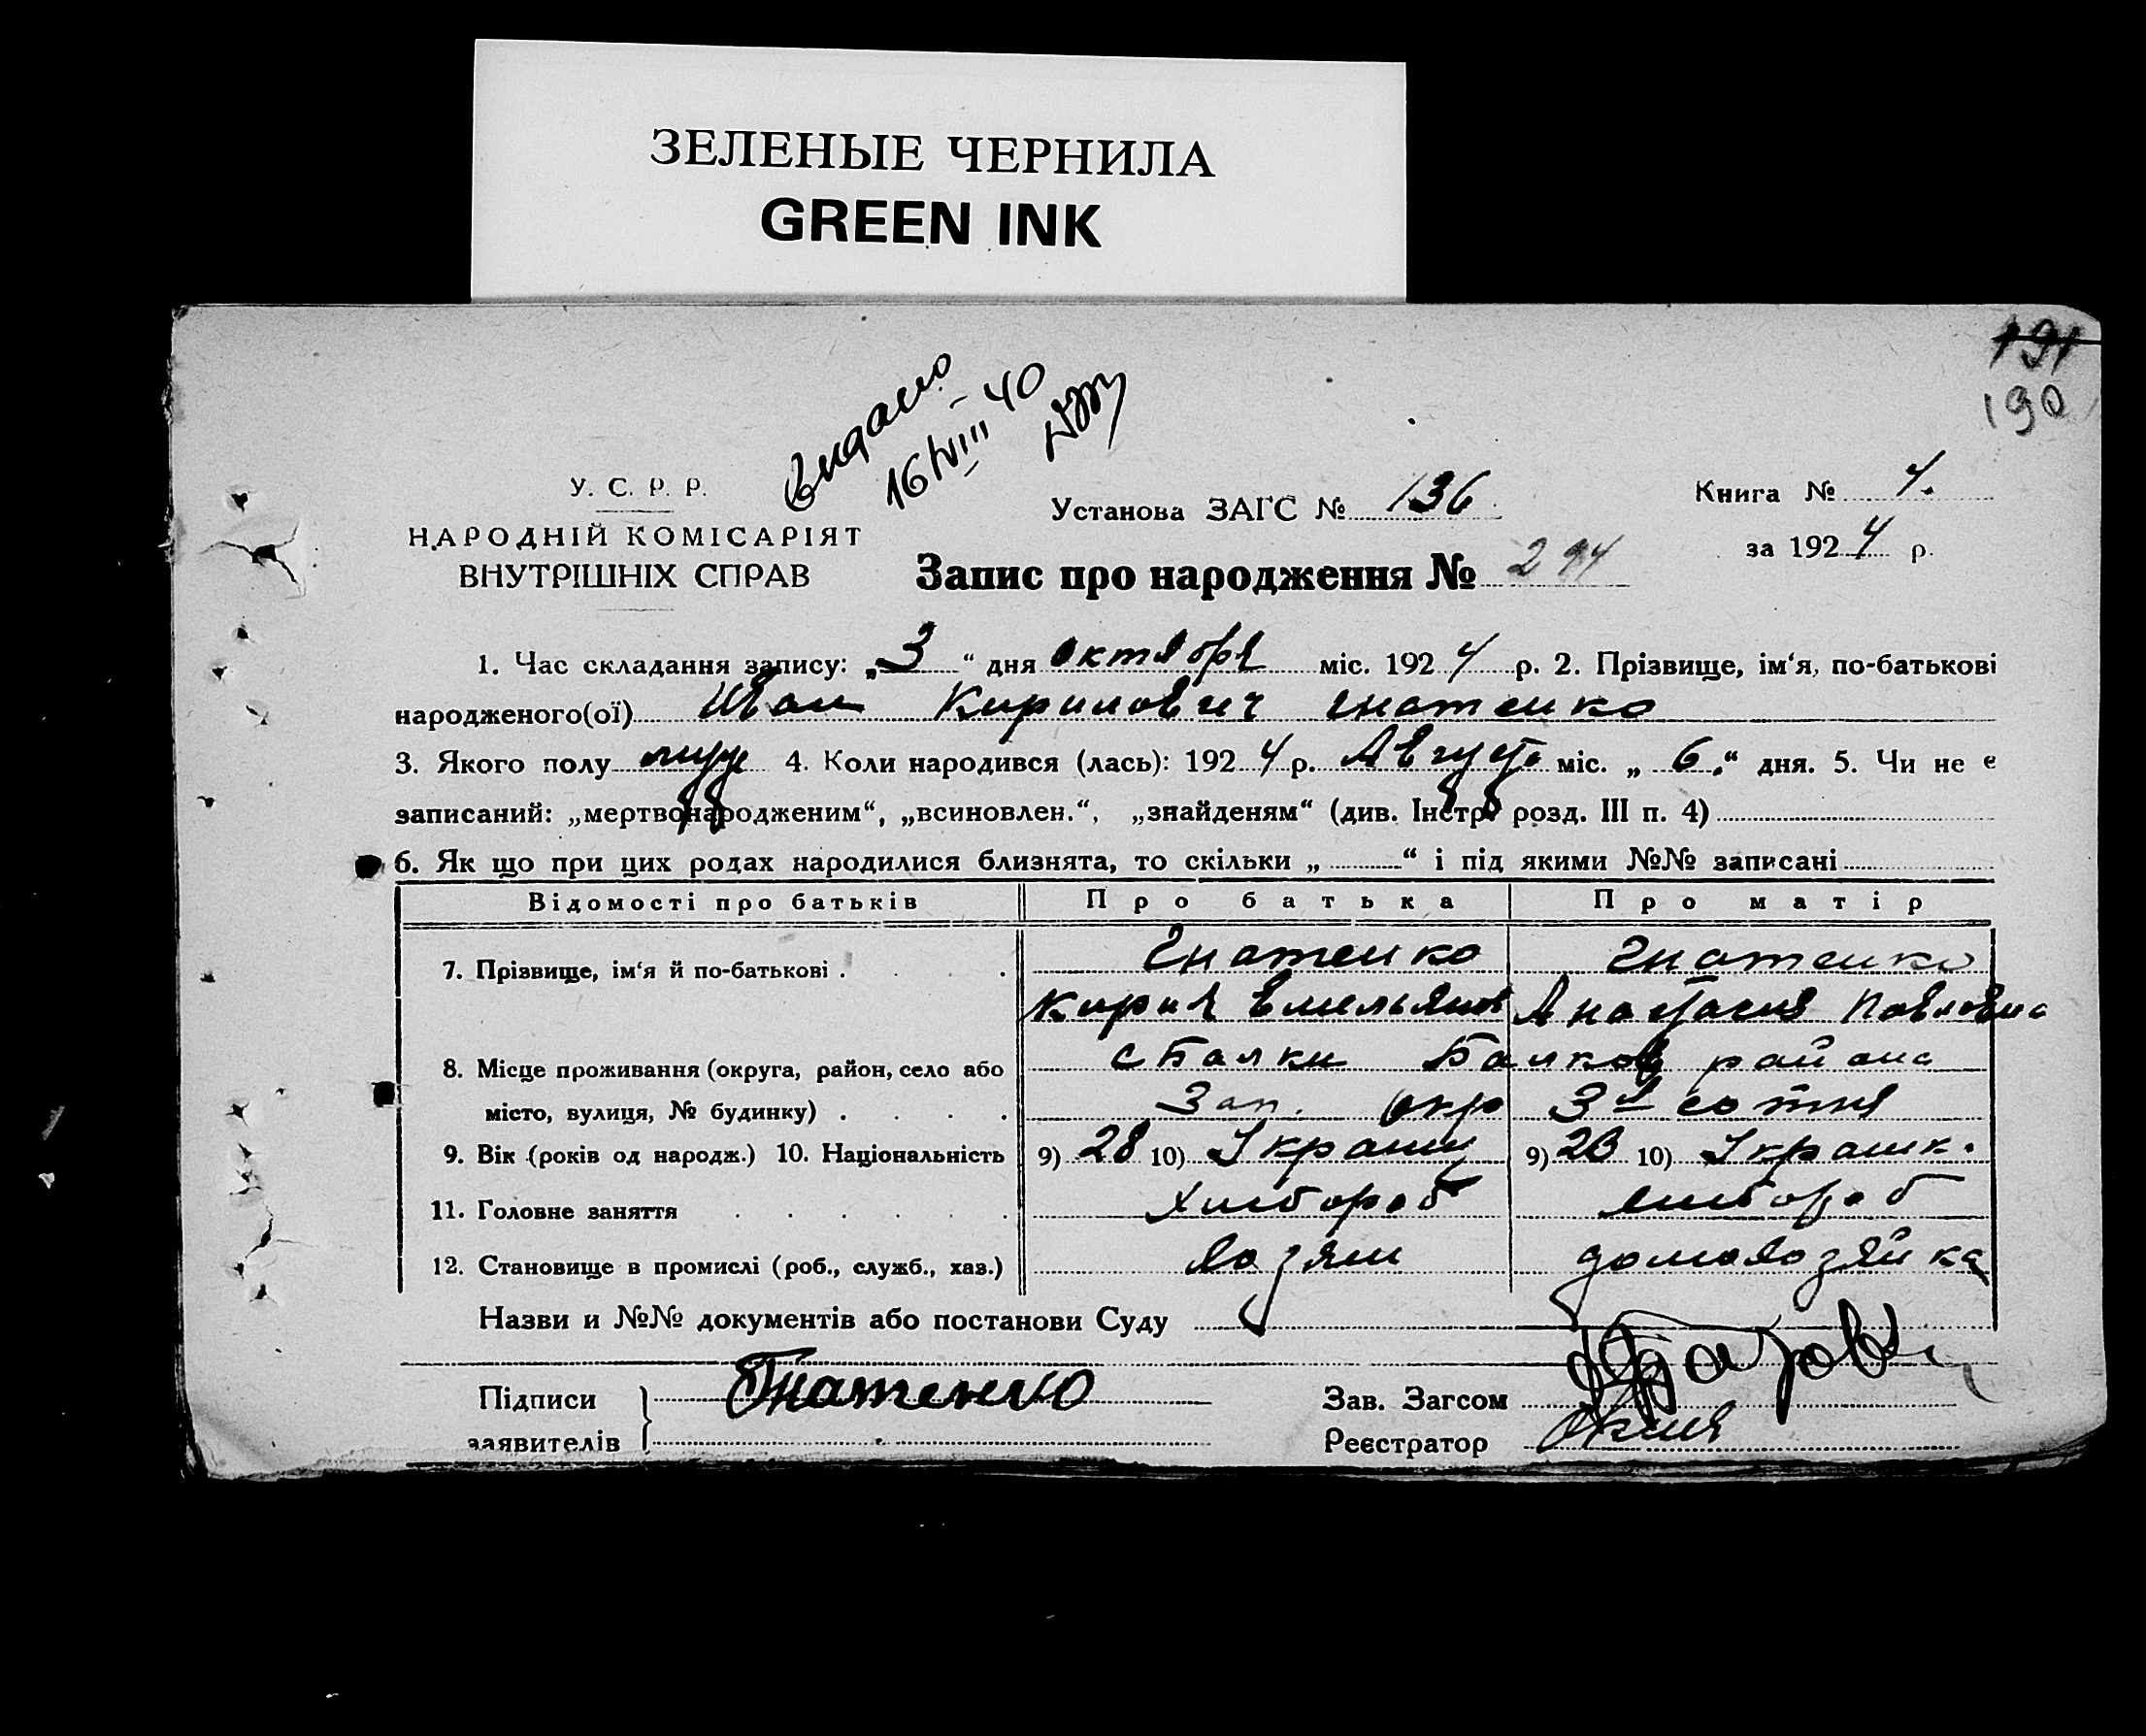 ЗЕЛЕНЫЕ ЧЕРНИЛА
GREEN INK
191
190
Видано
16/VIII 40
У. С. Р. Р.
НАРОДНІЙ КОМІСАРІЯТ
ВНУТРІШНІХ СПРАВ
Установа ЗАГС № 136
Книга № 4.
за 1924 р.
Запис про народження № 294
1. Час складання запису: „3“ дня октября міс. 1924 р. 2. Прізвище, ім‘я, по-батькові
народженого(ої) Иван Кирилович Гнатенко
3. Якого полу муж 4. Коли народився (лась): 1924 р. Августа міс. „6.“ дня. 5. Чи не є
записаний: „мертвонародженим“, „всиновлен.“, „знайденям“ (див. Інстр. розд. III п. 4)
6. Як що при цих родах народилися близнята, то скільки „ “ і під якими №№ записані
Відомості про батьків Про батька Про матір
7. Прізвище, ім‘я й по-батькові . Гнатенко Гнатенко
Кирил Емельянов Анастасия Павловна
8. Місце проживання (округа, район, село або с Балки Балков района
місто, вулиця, № будинку) . Зап. Окр 3я сотня
9. Вік (років од народж.) 10. Національність 9) 28 10) Украин 9) 23 10) Украинк.
11. Головне заняття Хлібороб хлібороб
12. Становище в промислі (роб., служб., хаз.) хозяин домохозяйка
Назви и №№ документів або постанови Суду
Підписи Гнатенко Зав. Загсом
заявителів Реєстратор